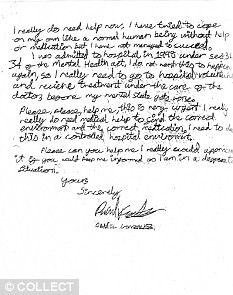 I really do need help now, I have tried to cope
on my own like a normal human being without help
or medication but I have not managed to succeed.
I was admitted to hospital in 1998 under section
37 of the Mental Health act, I do not want this to happen
again, so I really need to go to hospital voluntarily
and receive treatment under the care of the
doctors before my mental state gets worse
Please, please help me this is very urgent I really
really do need medical help to the correct
environment and the correct medication, I need to do
this in a controlled hospital environment.
Please can you help me I really would appreciate
it if you could keep me informed as I am in a desperate
situation.
Yours
Sincerely
© COLLECT